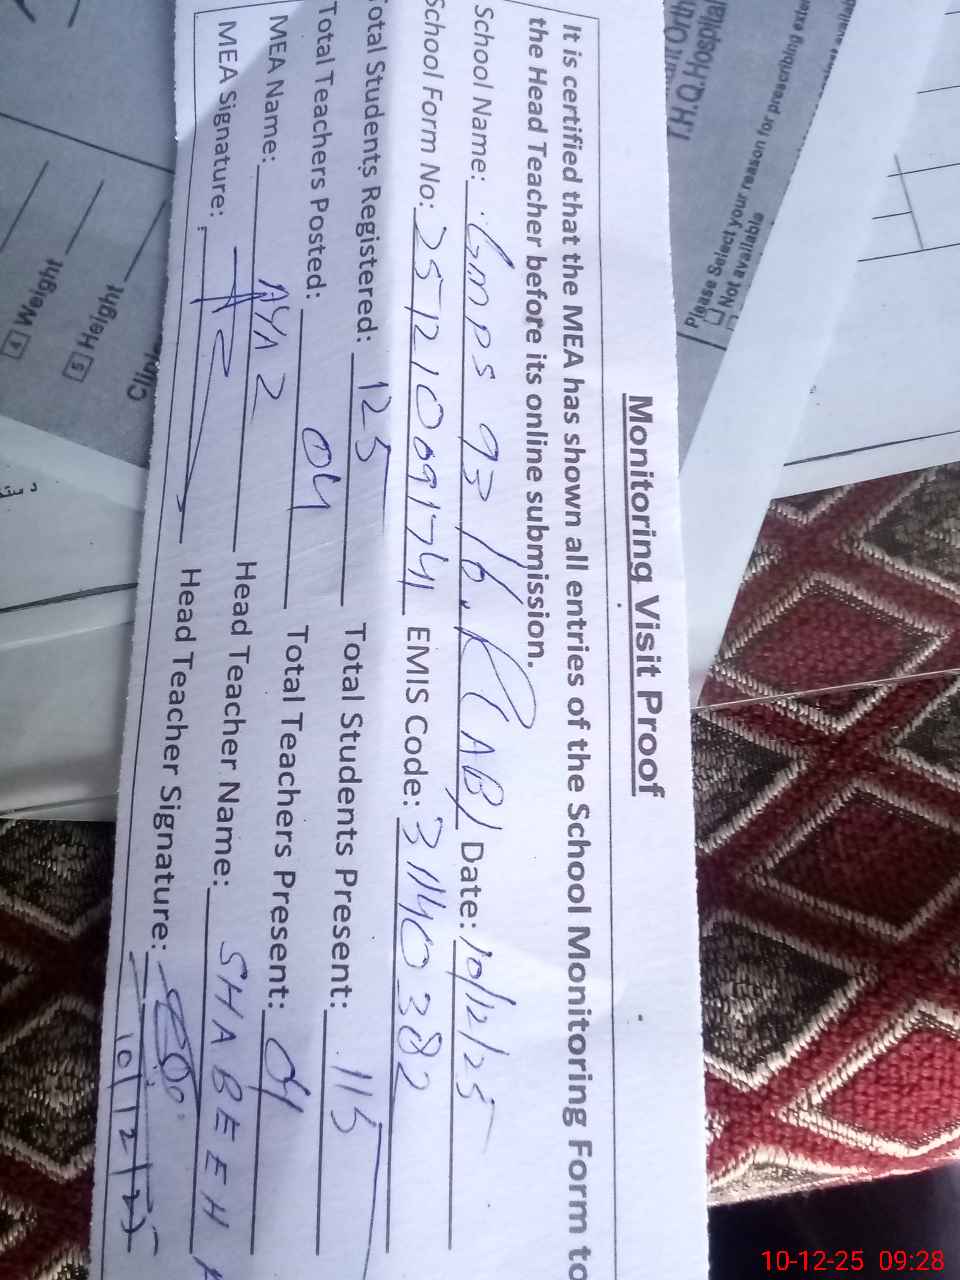 Monitoring Visit Proof
It is certified that the MEA has shown all entries of the School Monitoring Form to
the Head Teacher before its online submission.
School Name: Gmps 93/6.R (AB) Date: 10/12/25
School Form No: 251210091741 EMIS Code: 31140382
Total Students Registered: 125 Total Students Present: 115
Total Teachers Posted: 04 Total Teachers Present: 04
MEA Name: Head Teacher Name: SHABEEH
MEA Signature: Head Teacher Signature:
10/12/25
T.H.Q.Hospital
Please Select your reason for prescribing
Not available
4 Weight
5 Height
10-12-25 09:28